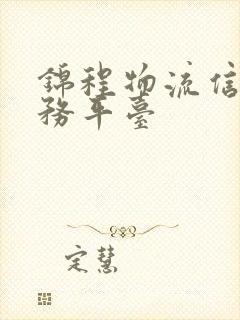 錦程物流信
務平臺
定慧